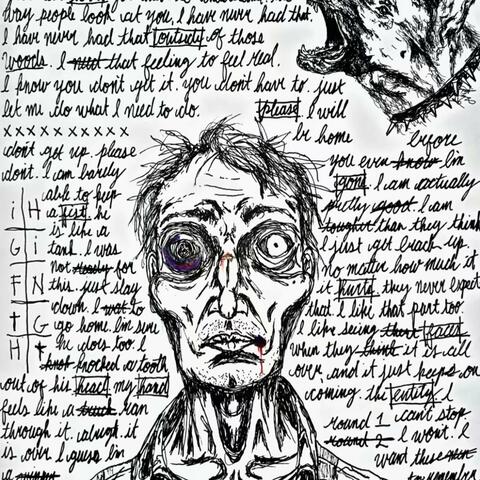 way people look at you, I have never had that.
I have never had that of those
words. I need that feeling to feel real.
I know you don't get it. you don't have to. just
let me do what I need to do. please. I will
be home before
x x x x x x x x x x
don't get up. please
don't. I am barely
able to keep
a fist. he
is like a
tank. I was
not ready for
this. just stay
down. I want to
go home. I'm sure
he does too. I
knocked a tooth
out of his head. my hand
feels like a truck ran
through it. alright. it
is over. I guess I'm
a
i H
G i
F N
t G
H t
you even know I'm
gone. I am actually
pretty good. I am
tougher than they think
I just get back up.
no matter how much it
it hurts. they never expect
that I like that part too.
I like seeing their faces
when they think it is all
over, and it just keeps on
coming. the entity. I
round 1 can't stop
round 2 I won't. I
want these
remember